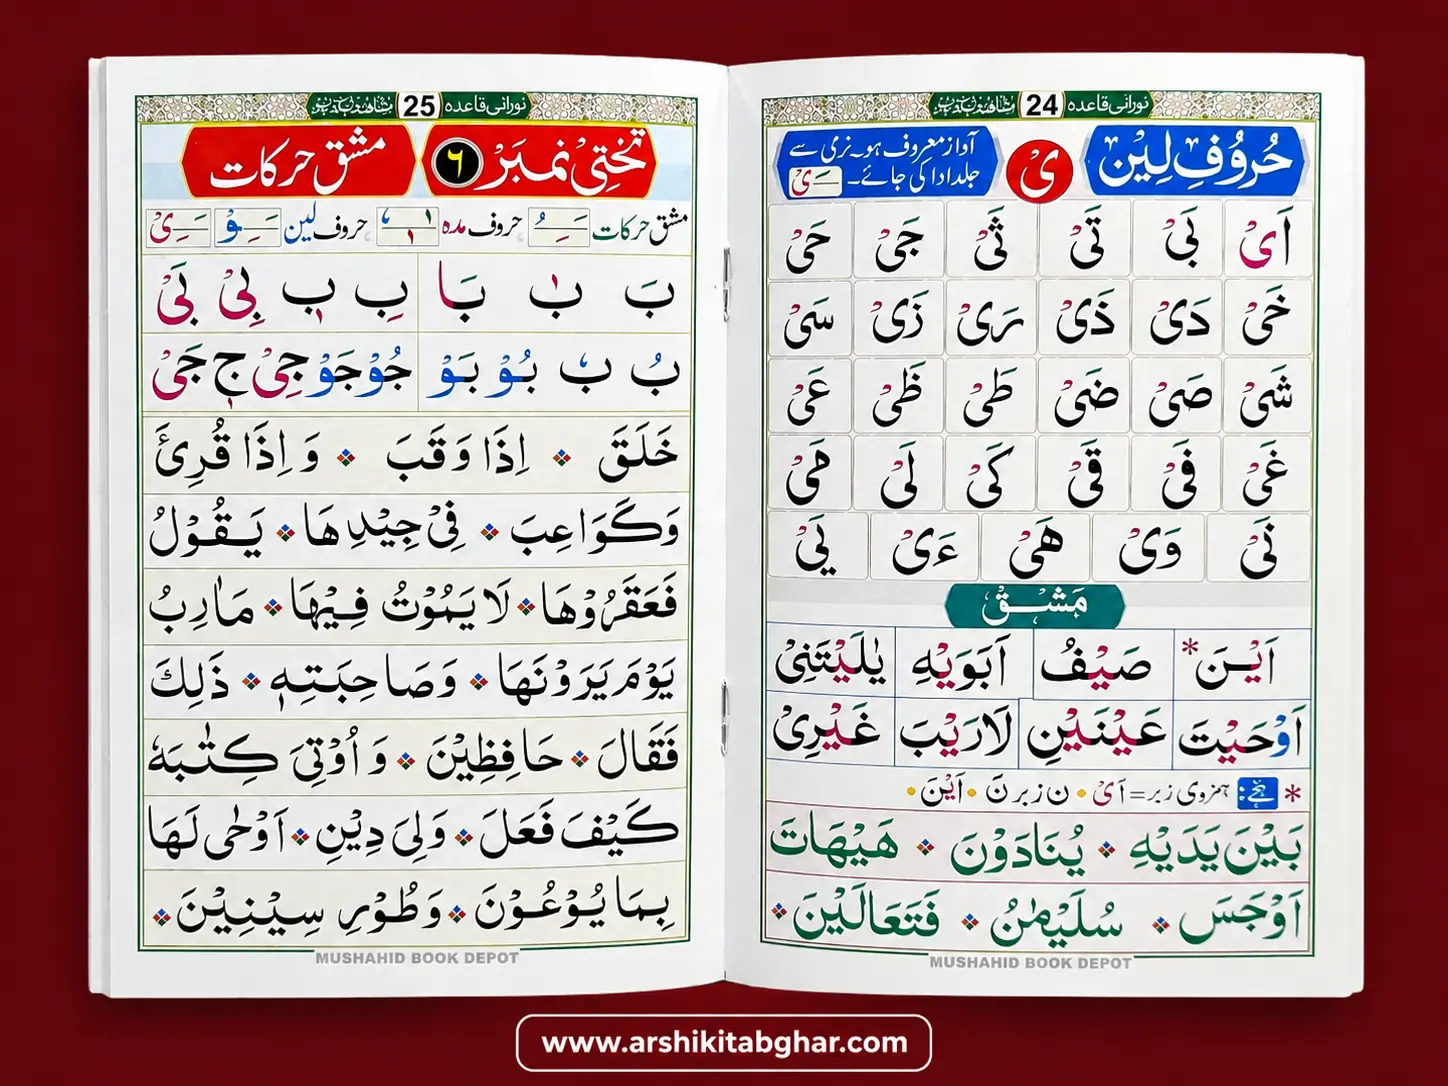 نورانی قاعدہ 24
حُرُوْفِ لِیْن
یْ
آواز معروف ہو۔ نرمی سے
جلد ادا کی جائے۔ ـَیْ
اَیْ بَیْ تَیْ ثَیْ جَیْ حَیْ
خَیْ دَیْ ذَیْ رَیْ زَیْ سَیْ
شَیْ صَیْ ضَیْ طَیْ ظَیْ عَیْ
غَیْ فَیْ قَیْ كَیْ لَیْ مَیْ
نَیْ وَیْ هَیْ ءَیْ یَیْ
مَشْق
اَیْنَ* صَیْفُ اَبَوَیْهِ یٰلَیْتَنِیْ
اَوْحَیْتَ عَیْنَیْنِ لَارَیْبَ غَیْرِیْ
* ہجے: ہمزہ ی زبر = اَیْ • ن زبر نَ • اَیْنَ •
بَیْنَ یَدَیْهِ یُنَادَوْنَ هَیْهَاتَ
اَوْجَسَ سُلَیْمٰنُ فَتَعَالَیْنَ
MUSHAHID BOOK DEPOT
نورانی قاعدہ 25
تختی نمبر ٦ مشق حرکات
مشق حرکات ـَـِـُ حروف مدہ حروف لین ـَوْ ـَیْ
بَ بٰ بَا بِ بٖ بِیْ بَیْ
بُ بٗ بُوْ بَوْ جُوْ جَوْ جِیْ جٖ جَیْ
خَلَقَ اِذَا وَقَبَ وَ اِذَا قُرِئَ
وَكَوَاعِبَ فِیْ جِیْدِهَا یَقُوْلُ
فَعَقَرُوْهَا لَا یَمُوْتُ فِیْهَا مَاٰرِبُ
یَوْمَ یَرَوْنَهَا وَصَاحِبَتِهٖ ذٰلِكَ
فَقَالَ حَافِظِیْنَ وَ اُوْتِیَ كِتٰبَهٗ
كَیْفَ فَعَلَ وَلِیَ دِیْنِ اَوْحٰی لَهَا
بِمَا یُوْعُوْنَ وَطُوْرِ سِیْنِیْنَ
MUSHAHID BOOK DEPOT
www.arshikitabghar.com